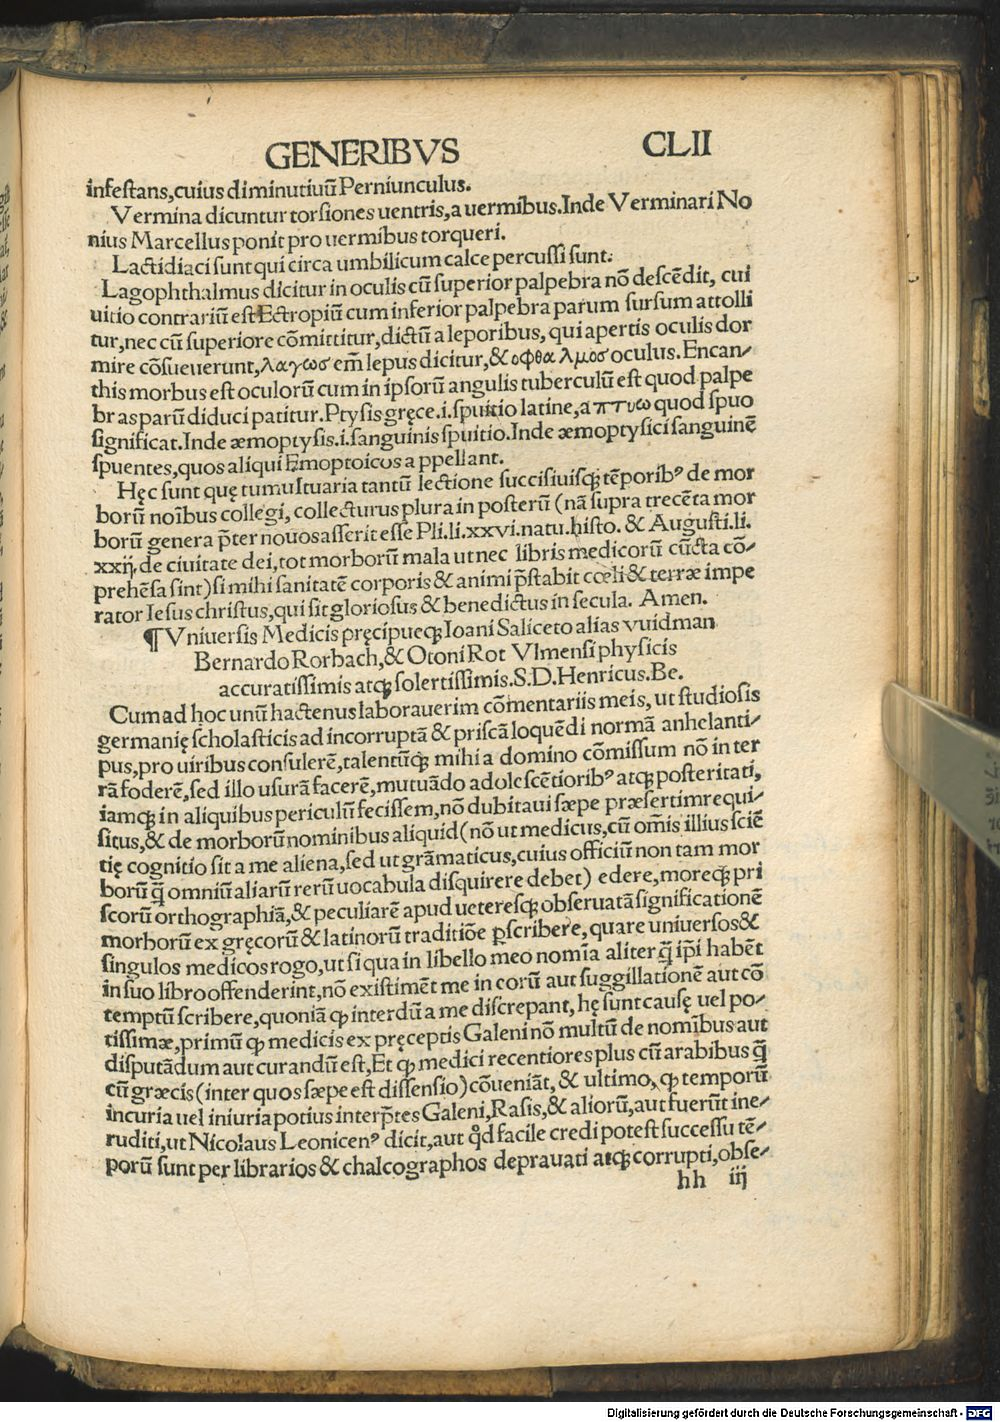 GENERIBVS CLII
infestans,cuius diminutiuũ Perniunculus.
Vermina dicuntur torsiones uentris,a uermibus.Inde Verminari No
nius Marcellus ponit pro uermibus torqueri.
Lactidiaci sunt qui circa umbilicum calce percussi sunt.
Lagophthalmus dicitur in oculis cũ superior palpebra nõ descẽdit, cui
uitio contrariũ est Ectropiũ cum inferior palpebra parum sursum attolli
tur,nec cũ superiore cõmittitur,dictũ a leporibus, qui apertis oculis dor
mire cõsueuerunt,λαγωσ em̃ lepus dicitur,& οφθαλμοσ oculus.Encan/
this morbus est oculorũ cum in ipsorũ angulis tuberculũ est quod palpe
bras parũ diduci patitur.Ptysis gręce.i.spuitio latine,a πτυω quod spuo
significat.Inde æmoptysis.i.sanguinis spuitio.Inde æmoptysici sanguinẽ
spuentes,quos aliqui Emoptoicos appellant.
Hęc sunt quę tumultuaria tantũ lectione succisiuisqꝫ tẽporibꝰ de mor
borũ noĩbus collegi, collecturus plura in posterũ (nã supra trecẽta mor
borũ genera p̃ter nouos asserit esse Pli.li.xxvi.natu.histo. & Augusti.li.
xxij. de ciuitate dei,tot morborũ mala ut nec libris medicorũ cũcta cõ/
prehẽsa sint)si mihi sanitatẽ corporis & animi p̃stabit cœli & terræ impe
rator Iesus christus,qui sit gloriosus & benedictus in secula. Amen.
¶ Vniuersis Medicis pręcipueqꝫ Ioani Saliceto alias vuidman
Bernardo Rorbach,& Otoni Rot Vlmensi physicis
accuratissimis atqꝫ solertissimis.S.D.Henricus.Be.
Cum ad hoc unũ hactenus laborauerim cõmentariis meis, ut studiosis
germanię scholasticis ad incorruptã & priscã loquẽdi normã anhelanti/
pus,pro uiribus consulerẽ,talentũqꝫ mihi a domino cõmissum nõ in ter
rã foderẽ,sed illo usurã facerẽ,mutuãdo adolescẽtioribꝰ atqꝫ posteritati,
iamqꝫ in aliquibus periculũ fecissem,nõ dubitaui sæpe præsertim requi/
situs,& de morborũ nominibus aliquid(nõ ut medicus,cũ om̃is illius sciẽ
tię cognitio sit a me aliena,sed ut grãmaticus,cuius officiũ non tam mor
borũ q̃ omniũ aliarũ rerũ uocabula disquirere debet) edere,moreqꝫ pri
scorũ orthographiã,& peculiarẽ apud ueteresqꝫ obseruatã significationẽ
morborũ ex gręcorũ & latinorũ traditiõe ꝑscribere, quare uniuersos &
singulos medicos rogo,ut si qua in libello meo nomĩa aliter q̃ ip̃i habẽt
in suo libro offenderint,nõ existimẽt me in eorũ aut suggillationẽ aut cõ
temptũ scribere,quoniã ꝙ interdũ a me discrepant, hę sunt causę uel po/
tissimæ,primũ ꝙ medicis ex pręceptis Galeni nõ multũ de nomĩbus aut
disputãdum aut curandũ est,Et ꝙ medici recentiores plus cũ arabibus q̃
cũ græcis(inter quos sæpe est dissensio)cõueniãt, & ultimo, ꝙ temporũ
incuria uel iniuria potius interp̃tes Galeni,Rasis,& aliorũ,aut fuerũt ine/
ruditi,ut Nicolaus Leonicenꝰ dicit,aut qd̃ facile credi potest successu tẽ/
porũ sunt per librarios & chalcographos deprauati atqꝫ corrupti,obse/
hh iij
Digitalisierung gefördert durch die Deutsche Forschungsgemeinschaft - DFG